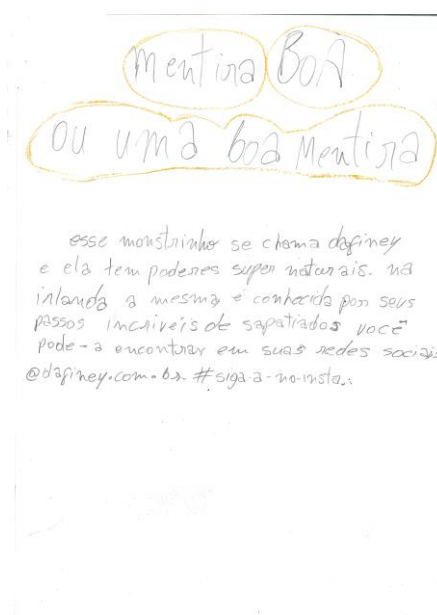 mentira BOA
ou uma boa mentira
esse monstrinho se chama dafiney
e ela tem poderes super naturais. na
irlanda a mesma é conhecida por seus
passos incriveis de sapatiados você
pode-a encontrar em suas redes sociais
@dafiney.com.br. #siga-a-no-insta..